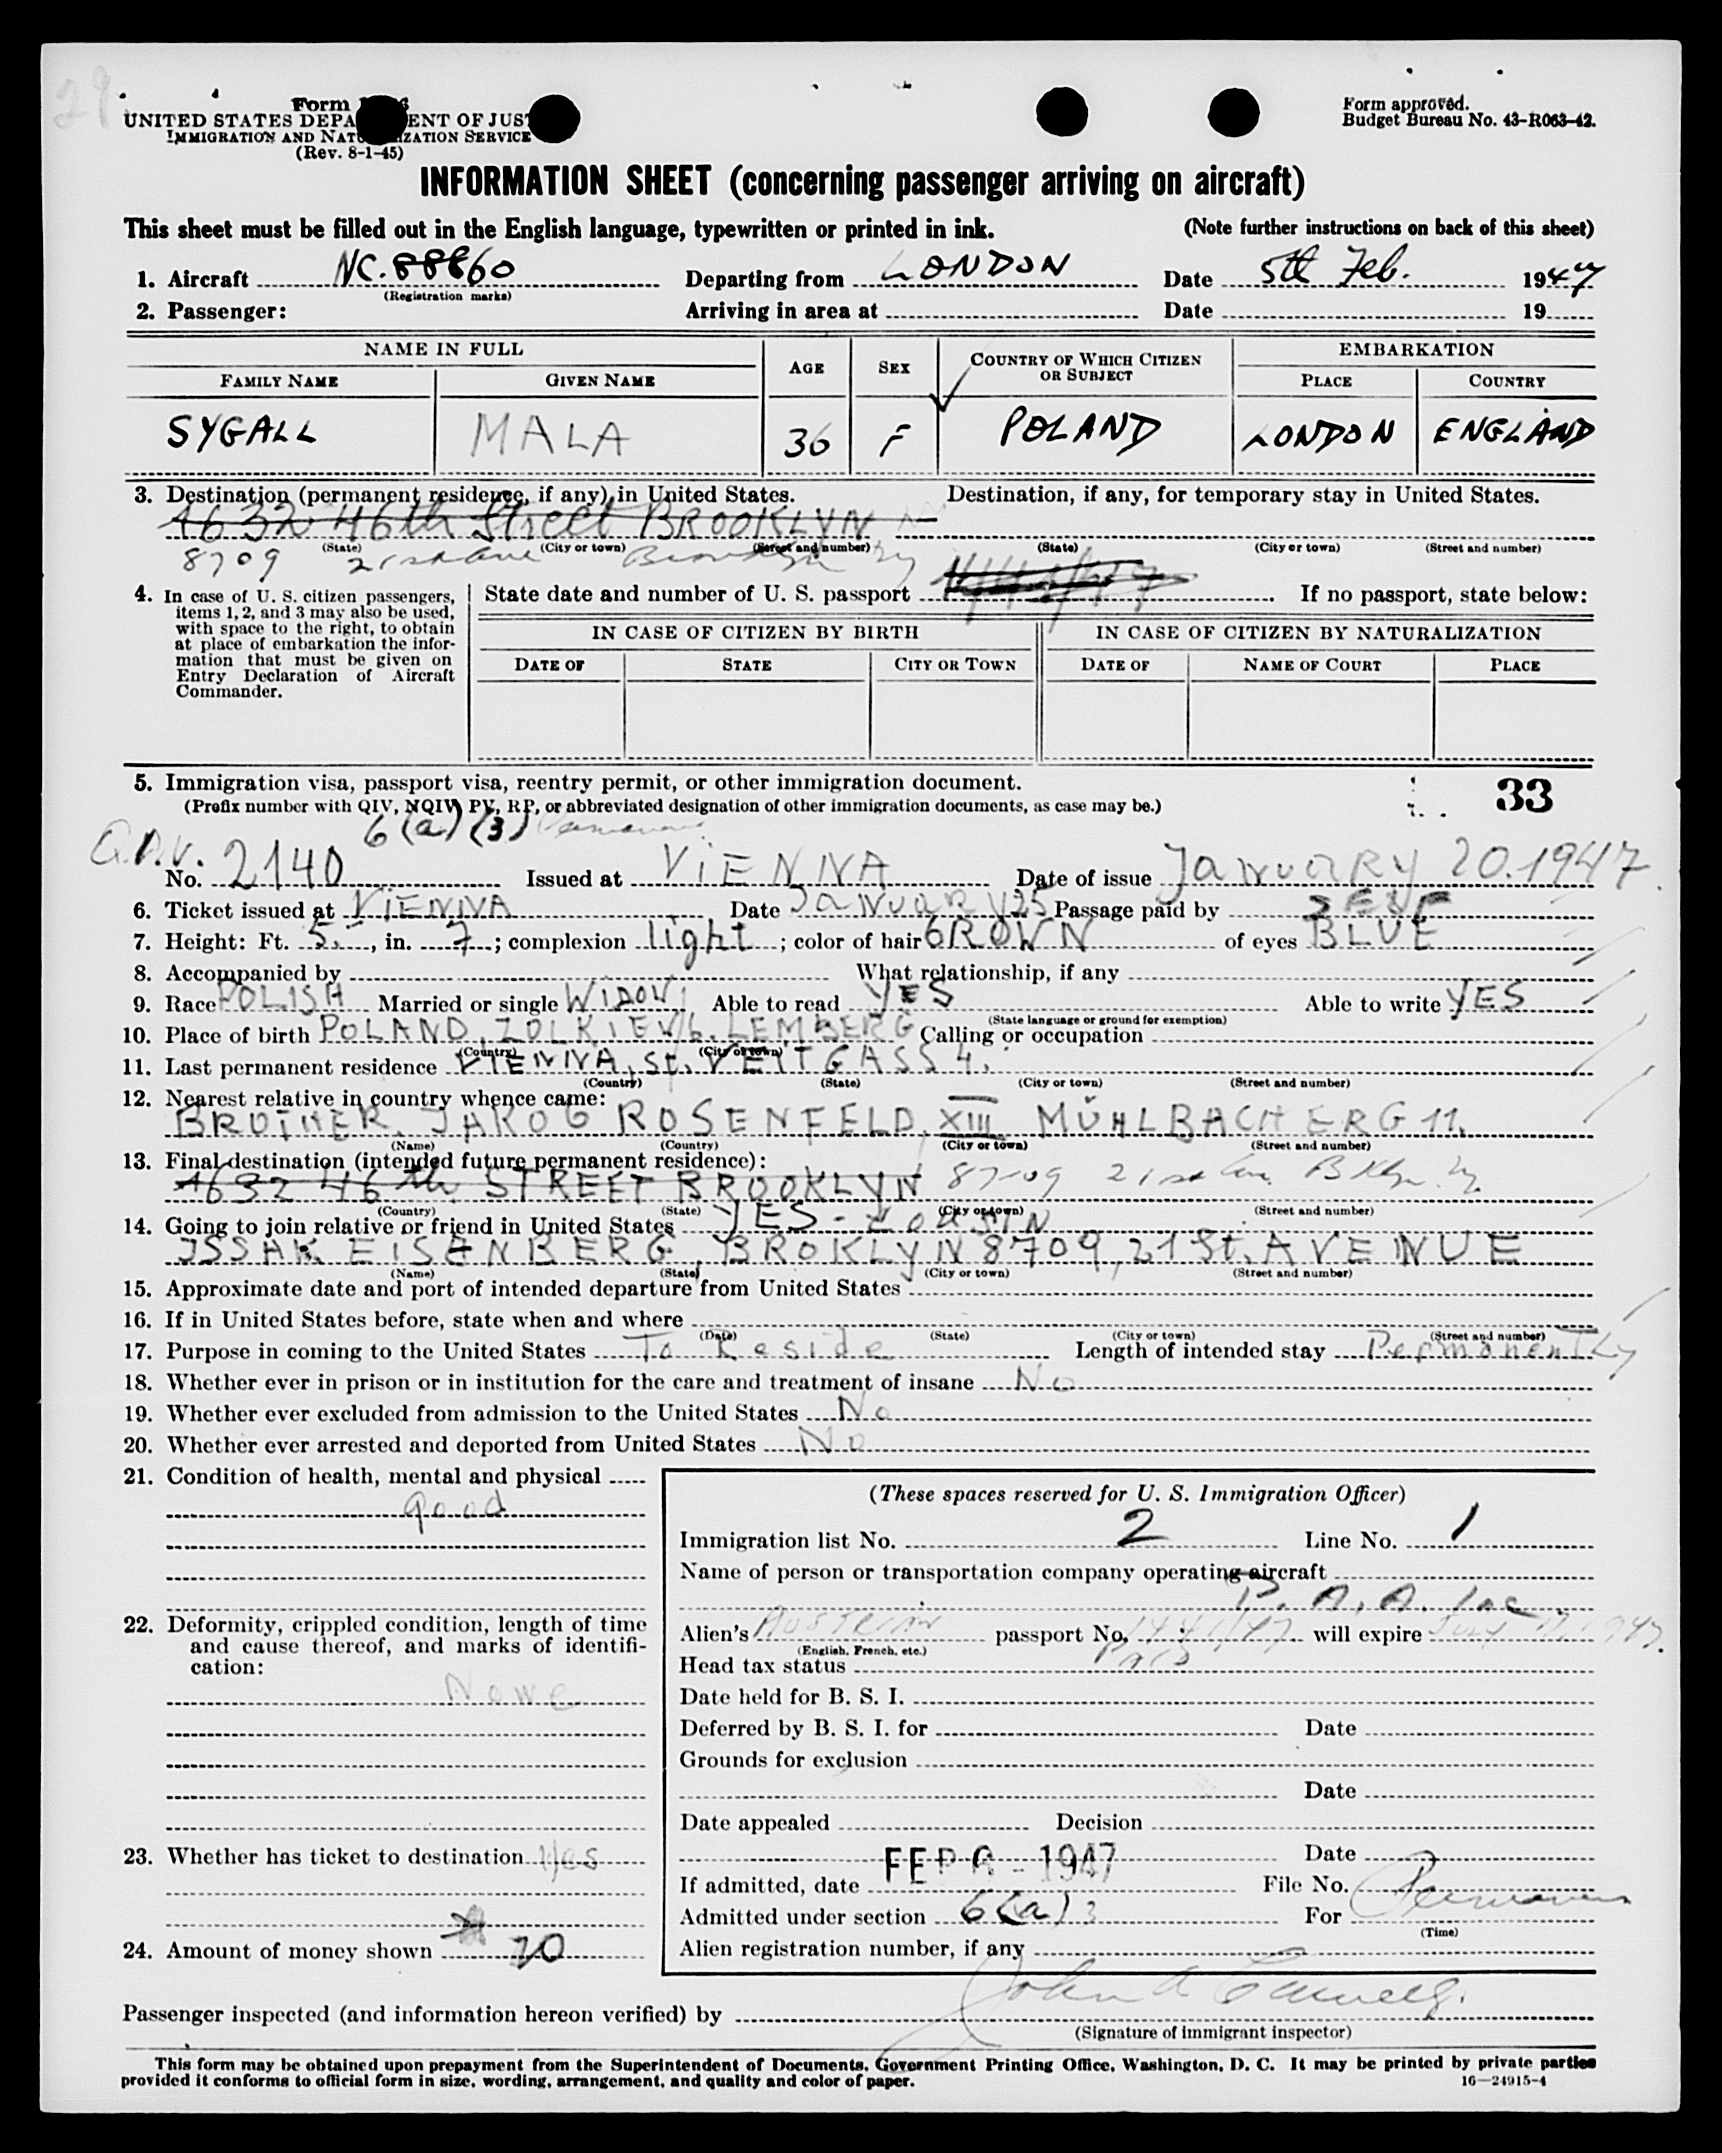 29.
Form I-466
UNITED STATES DEPARTMENT OF JUSTICE
IMMIGRATION AND NATURALIZATION SERVICE
(Rev. 8-1-45)
Form approved.
Budget Bureau No. 43-R063-42.
INFORMATION SHEET (concerning passenger arriving on aircraft)
This sheet must be filled out in the English language, typewritten or printed in ink. (Note further instructions on back of this sheet)
1. Aircraft NC. 88860 Departing from LONDON Date 5th Feb. 1947
(Registration marks)
2. Passenger: Arriving in area at Date 19
NAME IN FULL AGE SEX COUNTRY OF WHICH CITIZEN OR SUBJECT EMBARKATION
FAMILY NAME GIVEN NAME PLACE COUNTRY
SYGALL MALA 36 F POLAND LONDON ENGLAND
3. Destination (permanent residence, if any) in United States. Destination, if any, for temporary stay in United States.
1632 46th Street BROOKLYN
(State) (City or town) (Street and number) (State) (City or town) (Street and number)
8709 21st Ave Brooklyn NY
4. In case of U. S. citizen passengers, items 1, 2, and 3 may also be used, with space to the right, to obtain at place of embarkation the information that must be given on Entry Declaration of Aircraft Commander.
State date and number of U. S. passport If no passport, state below:
IN CASE OF CITIZEN BY BIRTH IN CASE OF CITIZEN BY NATURALIZATION
DATE OF STATE CITY OR TOWN DATE OF NAME OF COURT PLACE
5. Immigration visa, passport visa, reentry permit, or other immigration document. 33
(Prefix number with QIV, NQIV, PV, RP, or abbreviated designation of other immigration documents, as case may be.)
6 (a) (3) Permanent
No. 2140 Issued at VIENNA Date of issue January 20.1947.
6. Ticket issued at VIENNA Date January 25 Passage paid by SELF
7. Height: Ft. 5, in. 7; complexion light; color of hair BROWN of eyes BLUE
8. Accompanied by What relationship, if any
9. Race POLISH Married or single WIDOW Able to read YES Able to write YES
(State language or ground for exemption)
10. Place of birth POLAND, ZOLKIEW b. LEMBERG Calling or occupation
(Country) (City or town)
11. Last permanent residence VIENNA, ST. VEITGASS 4.
(Country) (State) (City or town) (Street and number)
12. Nearest relative in country whence came:
BROTHER. JAKOB ROSENFELD, XIII MÜHLBACHERG 11.
(Name) (Country) (City or town) (Street and number)
13. Final destination (intended future permanent residence):
1632 46th STREET BROOKLYN 87-09 21st Ave. Bklyn Ny.
(Country) (State) (City or town) (Street and number)
14. Going to join relative or friend in United States YES - COUSIN
ISSAK EISENBERG, BROKLYN 8709, 21 St. AVENUE
(Name) (State) (City or town) (Street and number)
15. Approximate date and port of intended departure from United States
16. If in United States before, state when and where
(Date) (State) (City or town) (Street and number)
17. Purpose in coming to the United States To Reside Length of intended stay Permanently
18. Whether ever in prison or in institution for the care and treatment of insane No
19. Whether ever excluded from admission to the United States No
20. Whether ever arrested and deported from United States No
21. Condition of health, mental and physical
good
22. Deformity, crippled condition, length of time and cause thereof, and marks of identification:
None
23. Whether has ticket to destination Yes
24. Amount of money shown 20
(These spaces reserved for U. S. Immigration Officer)
Immigration list No. 2 Line No. 1
Name of person or transportation company operating aircraft
P. A. A. Inc
Alien's Austrian passport No. 1441/47 will expire July 17, 1947.
(English, French, etc.)
Head tax status Paid
Date held for B. S. I.
Deferred by B. S. I. for Date
Grounds for exclusion
Date
Date appealed Decision
Date
If admitted, date FEB 6 - 1947 File No.
Admitted under section 6(a)3 For Permanent
(Time)
Alien registration number, if any
Passenger inspected (and information hereon verified) by John A
(Signature of immigrant inspector)
This form may be obtained upon prepayment from the Superintendent of Documents, Government Printing Office, Washington, D. C. It may be printed by private parties
provided it conforms to official form in size, wording, arrangement, and quality and color of paper. 16—24915-4